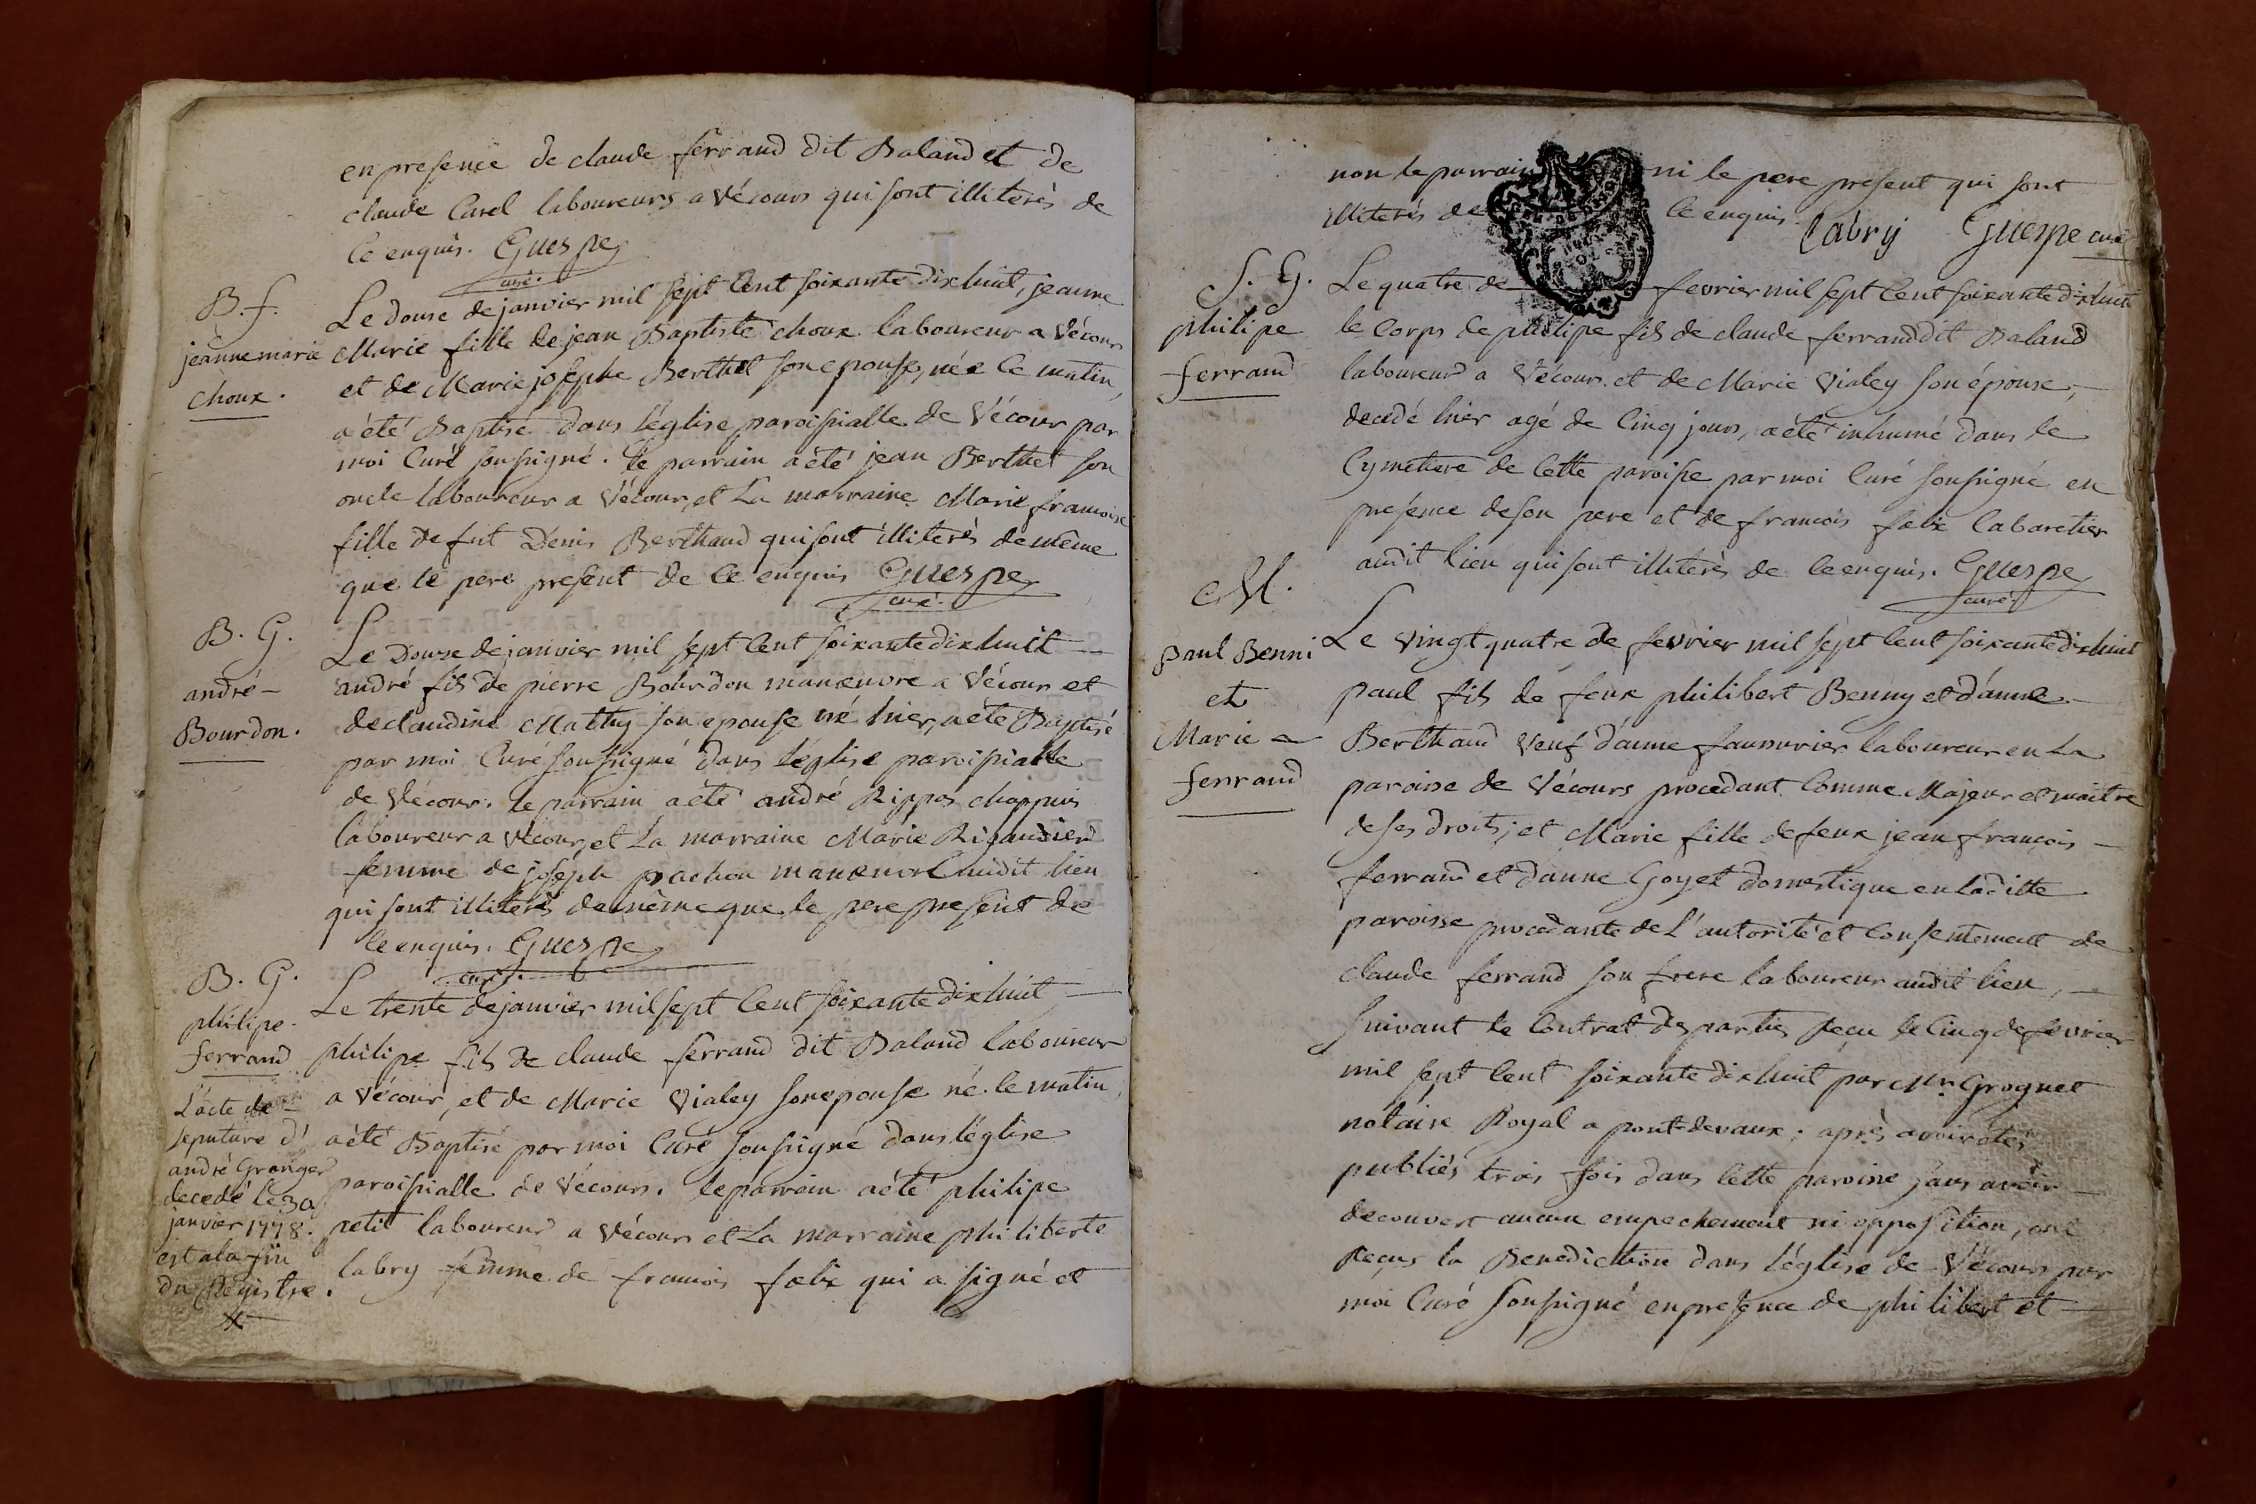 en presence de claude ferrand dit Baland et de
claude Carel laboureurs a Vécours qui sont illiterés de
ce enquis. Guespe
curé.
B. f.
jeanne marie
choux.
Le douse de janvier mil sept cent soixante dix huit, jeanne
Marie fille de jean Baptiste choux laboureur a Vécours
et de Marie joséphe Berthet son epouse, née ce matin,
a été Baptisé dans l'église paroissialle de Vécour par
moi Curé soussigné. Le parrain a été jean Berthet son
oncle laboureur a Vécour, et La marraine Marie francoise
fille de fut Dénis Berthaud qui sont illiterés de même
que le pere present de ce enquis Guespe
curé.
B. G.
andré
Bourdon.
Le Douse de janvier mil sept cent soixante dix huit
andré fils de pierre Bourdon manœuvre a Vécours et
de claudine Mathy son epouse né hier, a été Baptisé
par moi Curé soussigné dans l'église paroissialle
de Vécour. le parrain a été andré Rippos chappuis
laboureur a Vécour, et La marraine Marie Rigaudier
femme de joséph prachon manœuvre audit lieu
qui sont illiterés de même que le pere present de
ce enquis. Guespe
curé.
B. G.
philipe
ferrand
Le trente de janvier mil sept cent soixante dix huit
philipe fils de claude ferrand dit Baland laboureur
a Vécour, et de Marie Vialey son epouse né le matin,
a été Baptisé par moi Curé soussigné dans l'église
paroissialle de Vécours. le parrain a été philipe
petit laboureur a Vécours et La marraine philiberte
labry femme de francois fœlix qui a signé et
L'acte de
sepulture d'
andré Granger
decedé le 30
janvier 1778.
est a la fin
du Régistre.
non le parrain ni le pere present qui sont
illiterés de ce enquis. Labry Guespe curé
S. G.
philipe
ferrand
Le quatre de fevrier mil sept cent soixante dix huit
le Corps de philipe fils de claude ferrand dit Baland
laboureur a Vécour, et de Marie Vialey son épouse,
decedé hier agé de Cinq jours, a été inhumé dans le
Cymetiere de Cette paroisse par moi Curé soussigné en
présence de son pere et de francois fœlix Cabaretier
audit lieu qui sont illiterés de ce enquis. Guespe
curé.
M.
paul Benni
et
Marie
ferrand
Le vingt quatre de fevrier mil sept cent soixante dix huit
paul fils de feux philibert Benny et d'anne
Berthaud veuf d'anne laboureur en La
paroisse de Vécours procedant Comme Majeur et maitre
de ses droits; et Marie fille de feux jean françois
ferrand et d'anne Goyet domestique en laditte
paroisse procedante de L'autorité et Consentement de
claude ferrand son frere laboureur audit lieu,
suivant le Contrat des parties reçu le Cinq de fevrier
mil sept cent soixante dix huit par Mr. Groguet
notaire Royal a pont-devaux; après avoir étés
publiés trois fois dans Cette paroisse sans avoir
decouvert aucun empechement ni opposition, ont
reçus la Benediction dans l'église de Vécours par
moi Curé soussigné en presence de philibert et